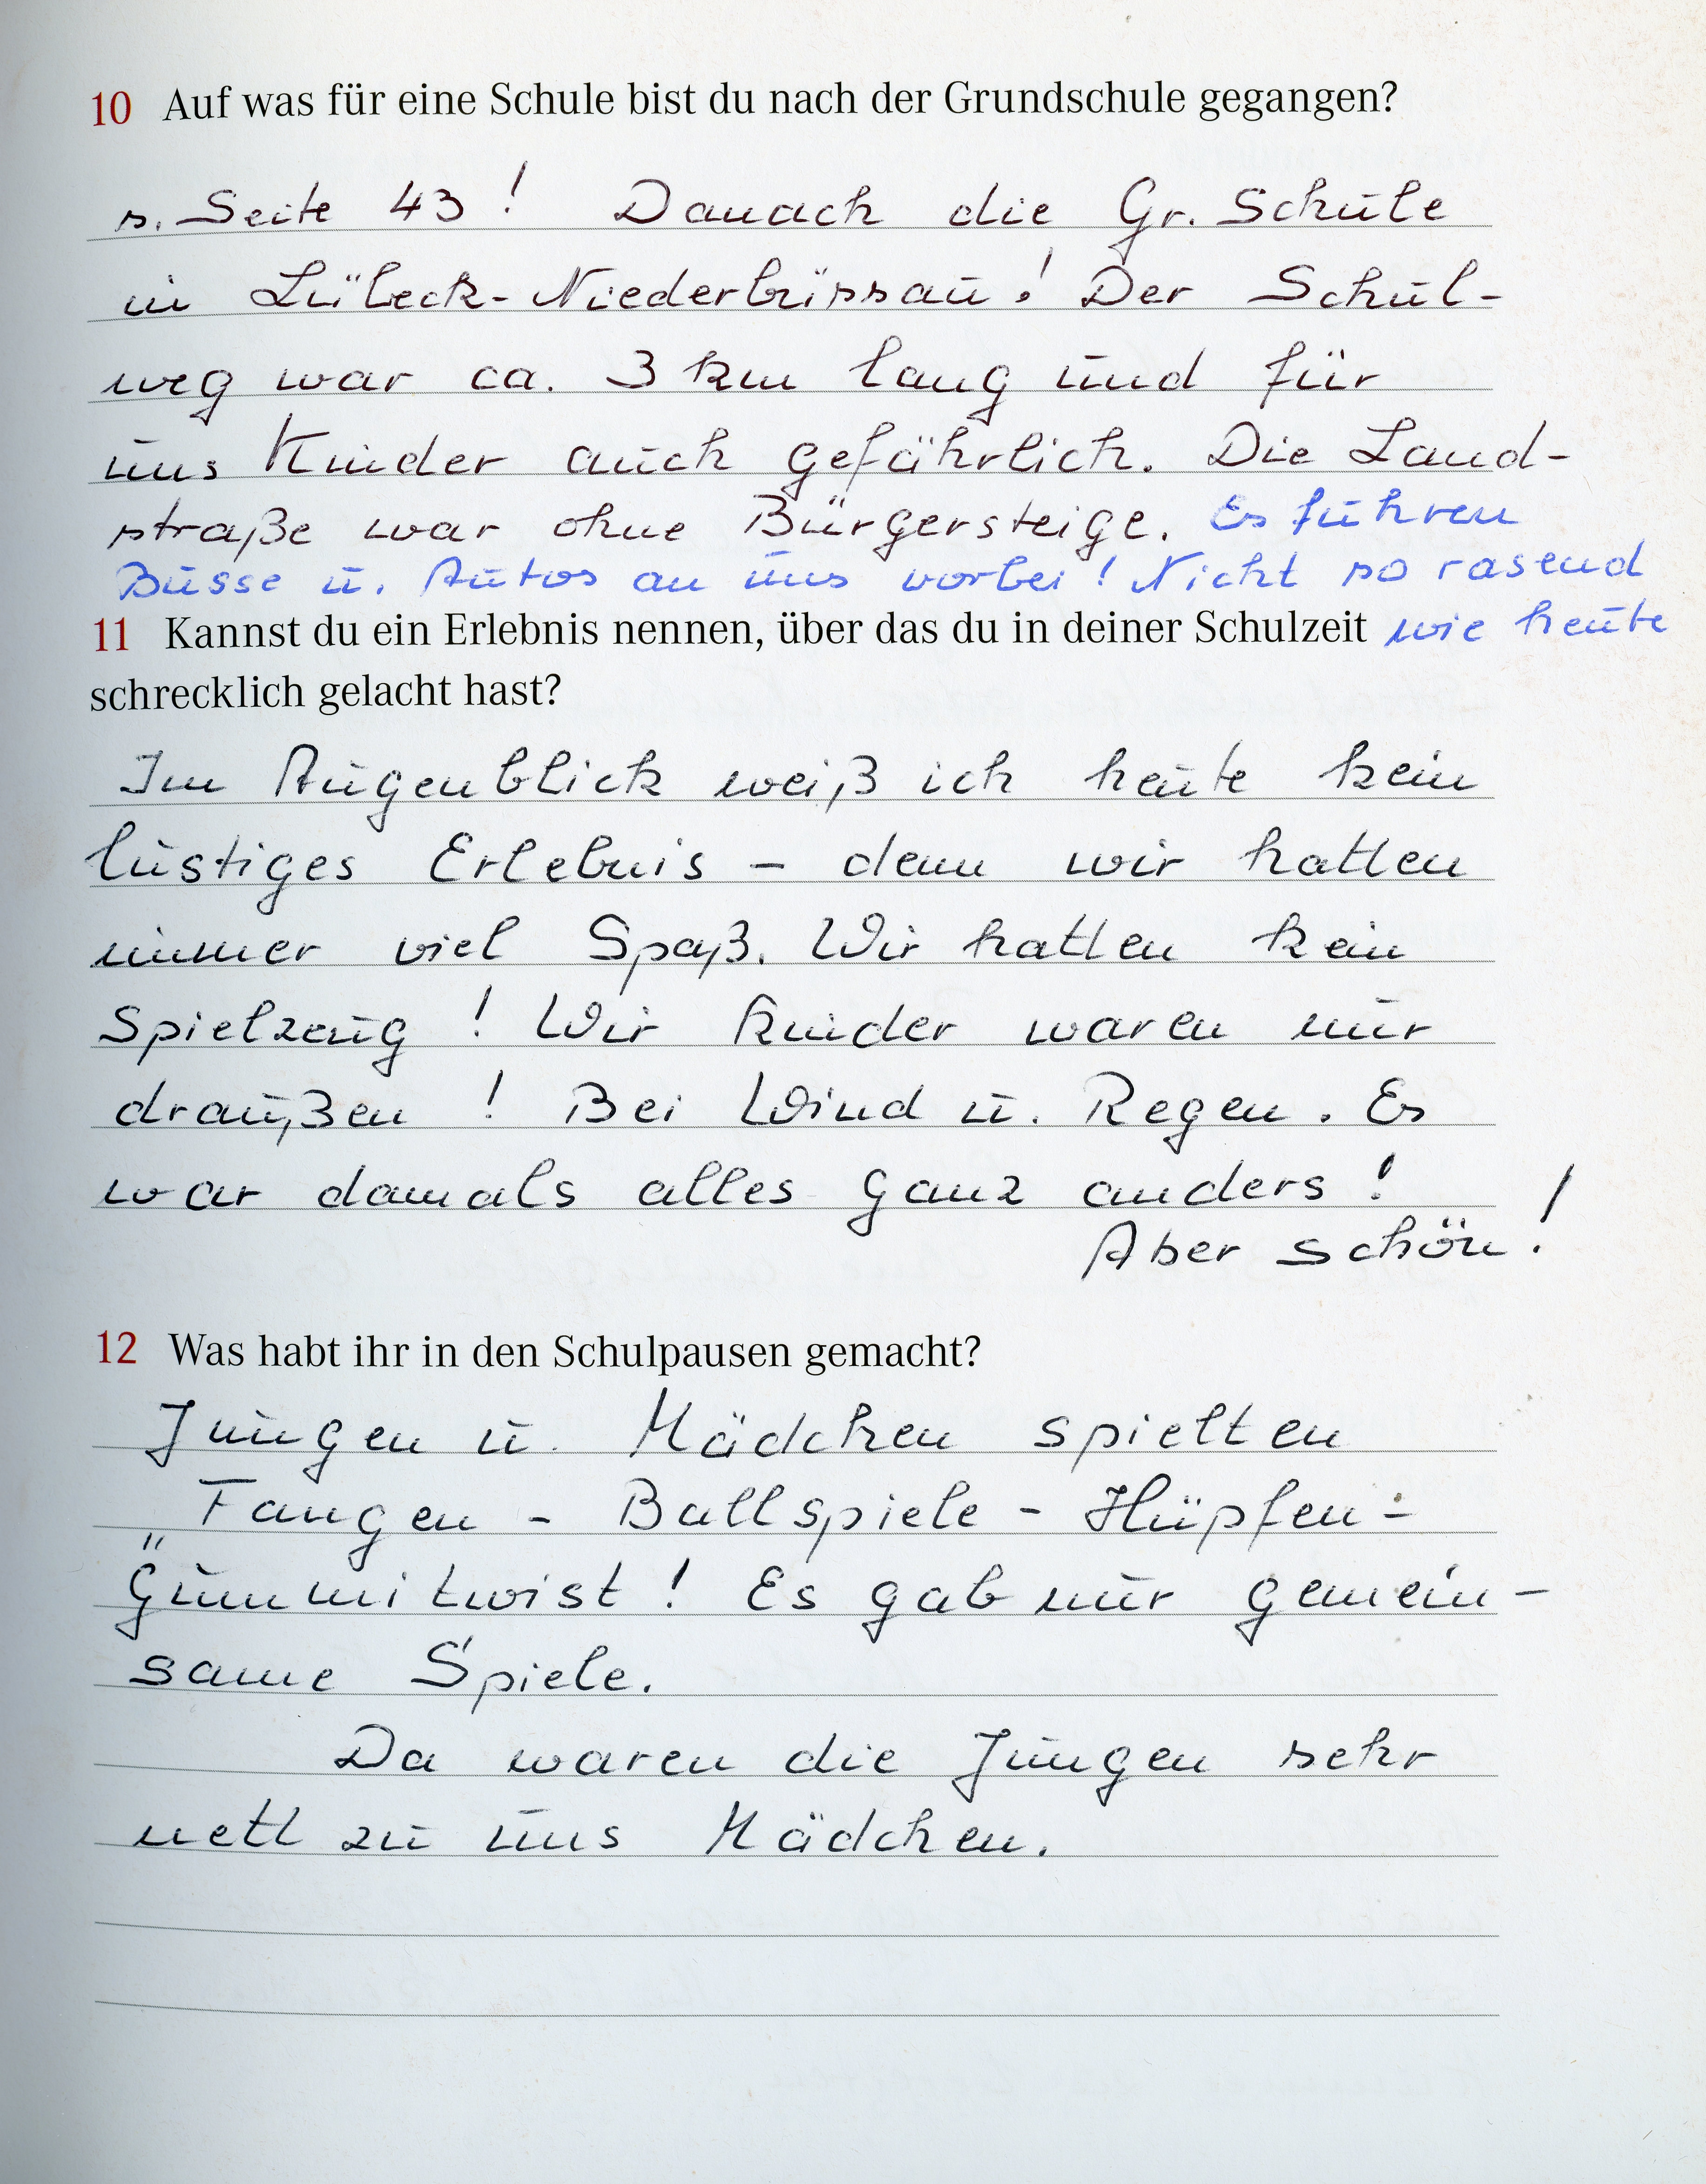 10 Auf was für eine Schule bist du nach der Grundschule gegangen?
s. Seite 43! Danach die Gr. Schule
in Lübeck-Niederbüssau! Der Schul-
weg war ca. 3 km lang und für
uns Kinder auch gefährlich. Die Land-
straße war ohne Bürgersteige. Es fuhren
Busse u. Autos an uns vorbei! Nicht so rasend
wie heute
11 Kannst du ein Erlebnis nennen, über das du in deiner Schulzeit
schrecklich gelacht hast?
Im Augenblick weiß ich heute kein
lustiges Erlebnis - denn wir hatten
immer viel Spaß. Wir hatten kein
Spielzeug! Wir Kinder waren nur
draußen! Bei Wind u. Regen. Es
war damals alles ganz anders!
Aber schön!
12 Was habt ihr in den Schulpausen gemacht?
Jungen u. Mädchen spielten
Fangen - Ballspiele - Hüpfen -
"Gummitwist! Es gab nur gemein-
same Spiele.
Da waren die Jungen sehr
nett zu uns Mädchen.